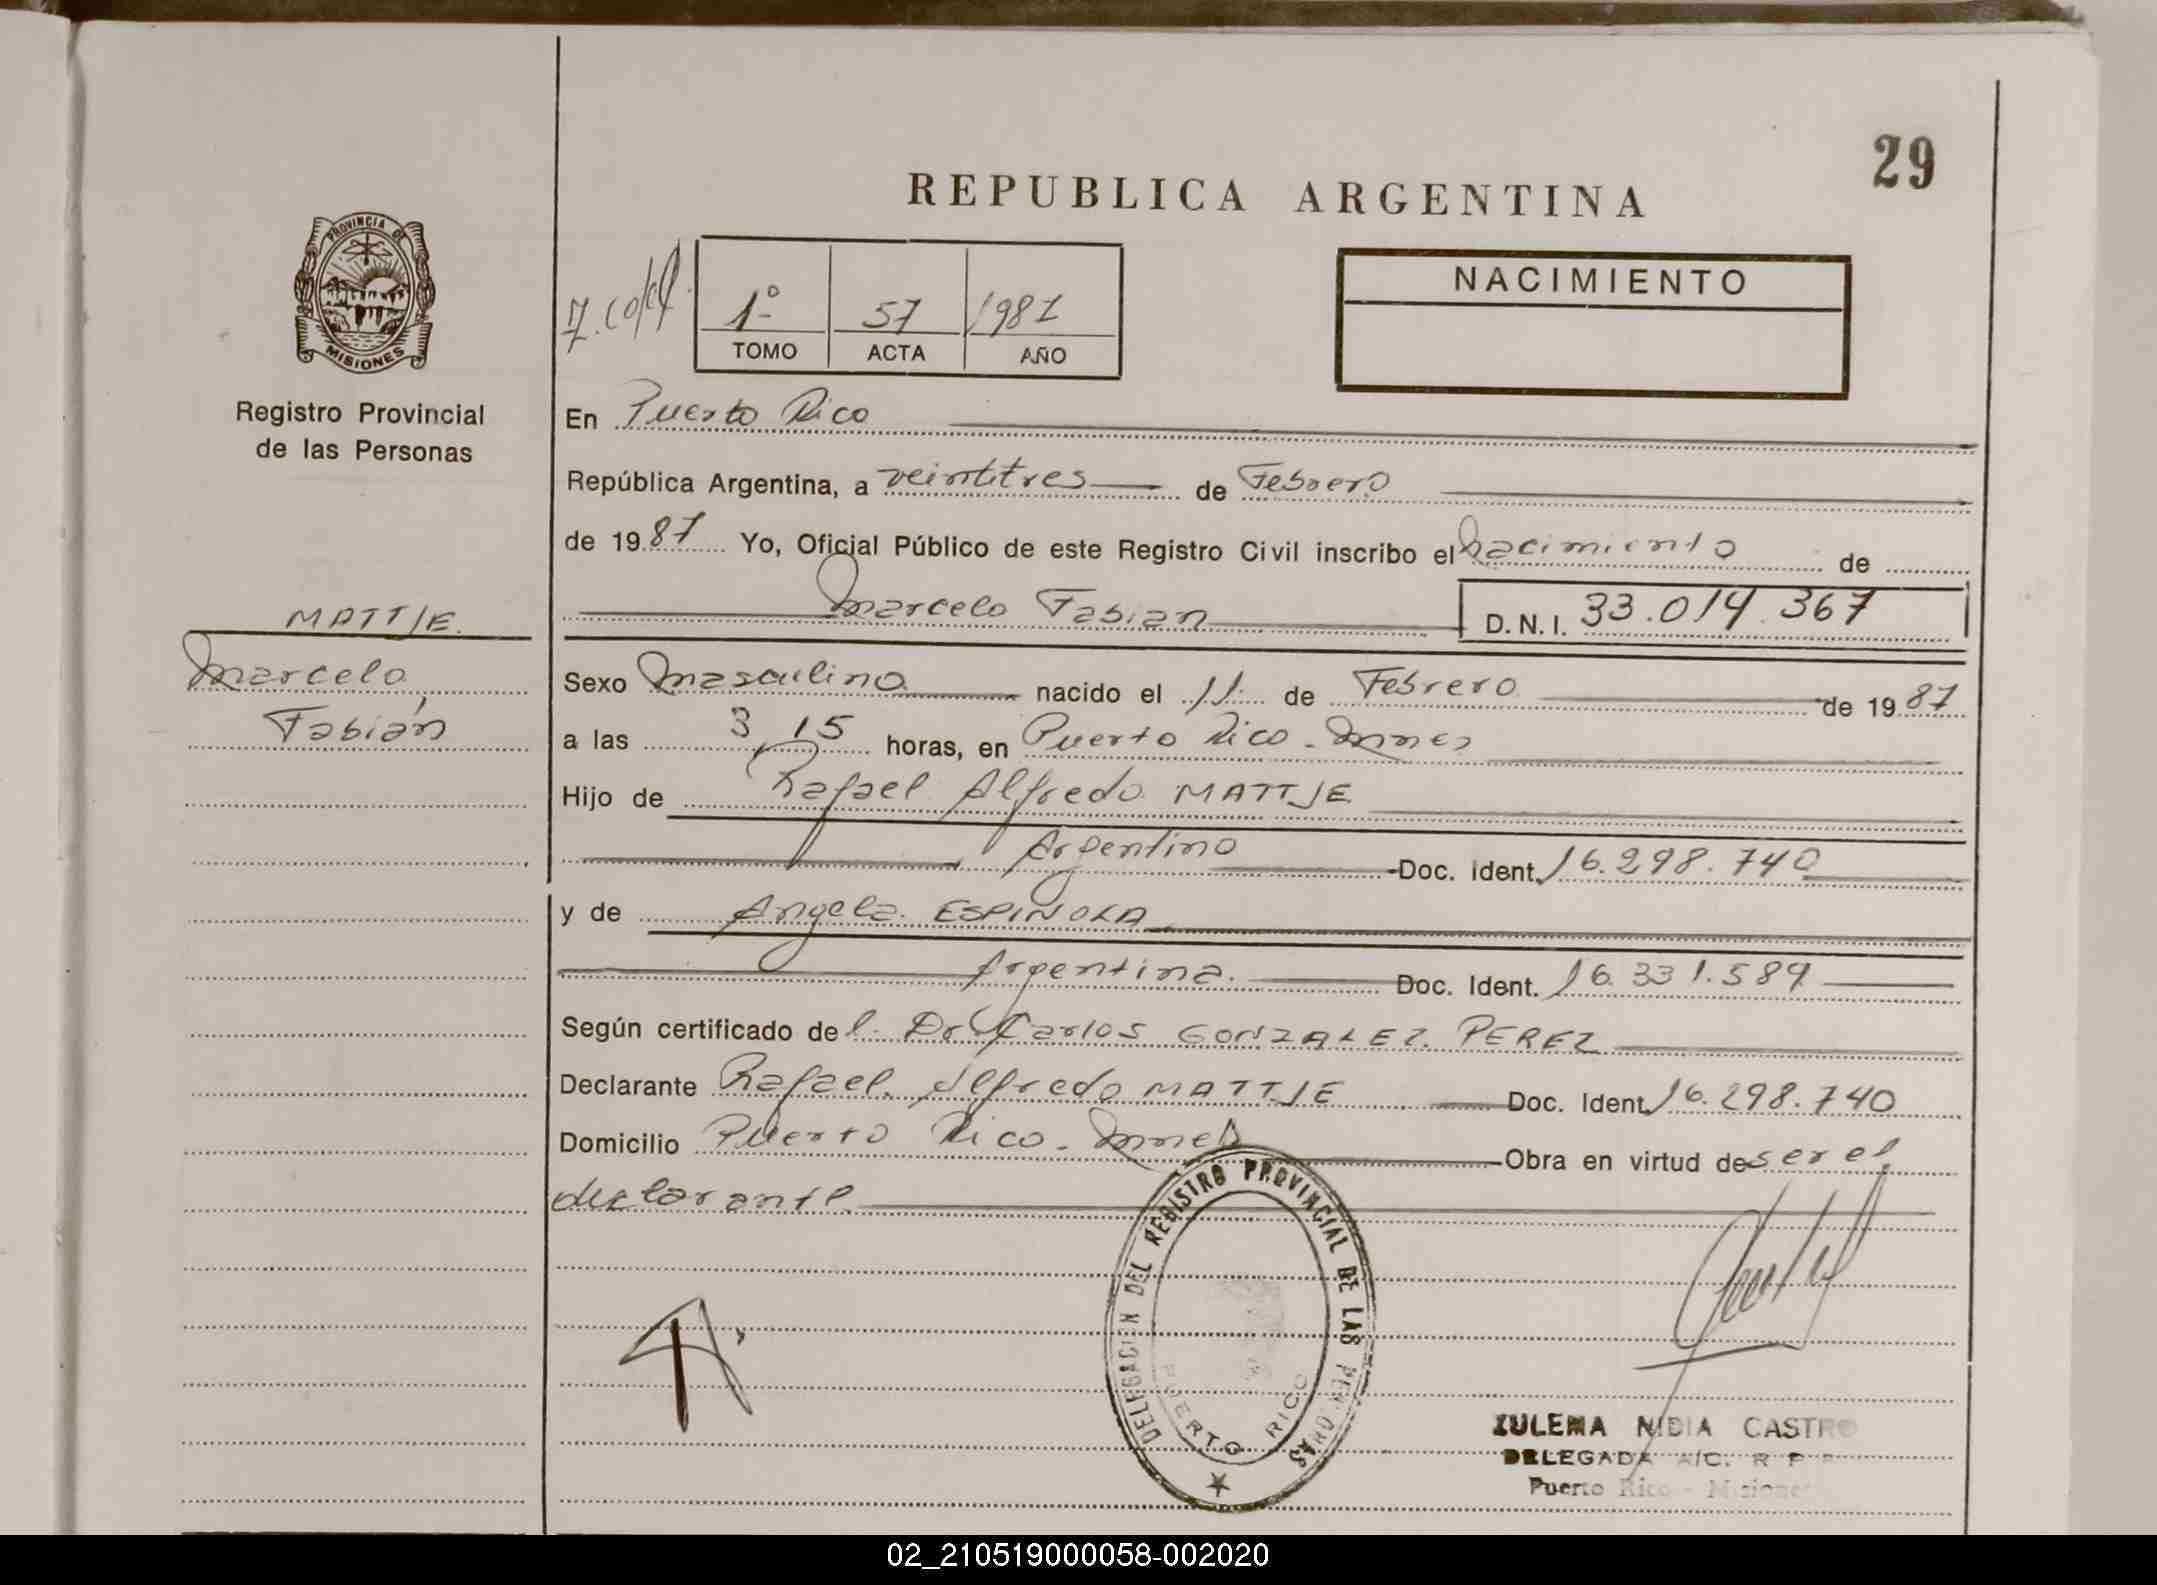 29
REPUBLICA ARGENTINA
PROVINCIA DE
MISIONES
Registro Provincial
de las Personas
1º 57 1987
TOMO ACTA AÑO
NACIMIENTO
En Puerto Rico
República Argentina, a veintitres de Febrero
de 1987 Yo, Oficial Público de este Registro Civil inscribo el nacimiento de
Marcelo Fabian D.N.I. 33.014.367
MATTJE
Marcelo,
Fabián
Sexo Masculino nacido el 11 de Febrero de 1987
a las 3,15 horas, en Puerto Rico - Mnes
Hijo de Rafael Alfredo MATTJE
Argentino Doc. ident. 16.298.740
y de Angela ESPINOLA
Argentina. Doc. Ident. 16.331.589
Según certificado del Dr. Carlos GONZALEZ PEREZ
Declarante Rafael Alfredo MATTJE Doc. Ident. 16.298.740
Domicilio Puerto Rico - Mnes Obra en virtud de ser el
declarante.
DELEGACION DEL REGISTRO PROVINCIAL DE LAS PERSONAS
PUERTO RICO
ZULEMA NIDIA CASTRO
DELEGADA A/C. R P P
Puerto Rico - Misiones
02_210519000058-002020